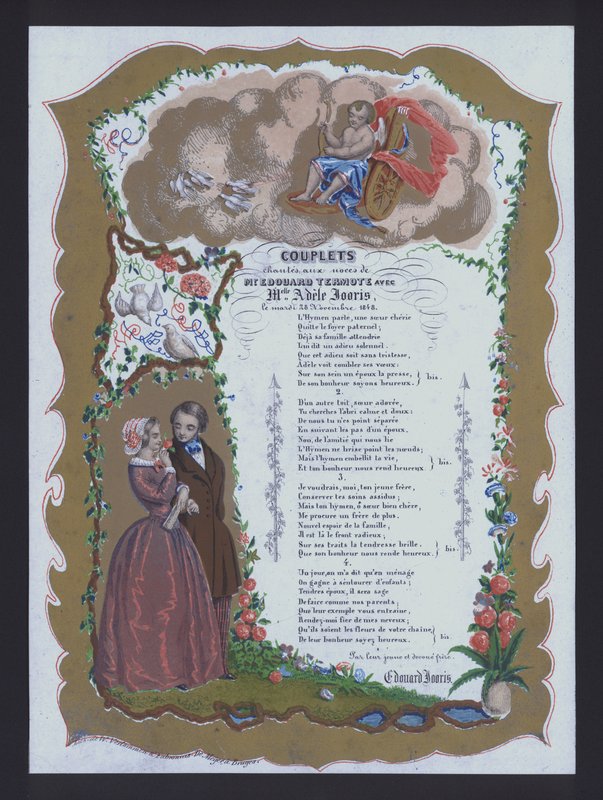 COUPLETS
chantés aux noces de
Mr EDOUARD TERMOTE AVEC
Melle Adèle Jooris,
le mardi 28 Novembre 1848.
L'Hymen parle, une sœur chérie
Quitte le foyer paternel;
Déjà sa famille attendrie
Lui dit un adieu solennel.
Que cet adieu soit sans tristesse,
Adèle voit combler ses vœux:
Sur son sein un époux la presse,
De son bonheur soyons heureux. } bis.
2.
D'un autre toit, sœur adorée,
Tu cherches l'abri calme et doux:
De nous tu n'es point séparée
En suivant les pas d'un époux.
Non, de l'amitié qui nous lie
L'Hymen ne brise point les nœuds;
Mais l'hymen embellit ta vie,
Et ton bonheur nous rend heureux } bis.
3.
Je voudrais, moi, ton jeune frère,
Conserver tes soins assidus;
Mais ton hymen, ô sœur bien chère,
Me procure un frère de plus.
Nouvel espoir de la famille,
Il est là le front radieux;
Sur ses traits la tendresse brille.
Que son bonheur nous rende heureux. } bis.
4.
Un jour, on m'a dit qu'en ménage
On gagne à s'entourer d'enfants;
Tendres époux, il sera sage
De faire comme nos parents;
Que leur exemple vous entraine,
Rendez-moi fier de mes neveux;
Qu'ils soient les fleurs de votre chaîne
De leur bonheur soyez heureux. } bis
Par leur jeune et dévoué frère.
Edouard Jooris.
à Bruges.